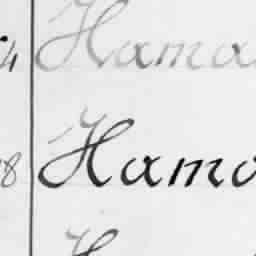 4 Hama
8 Hamo
H